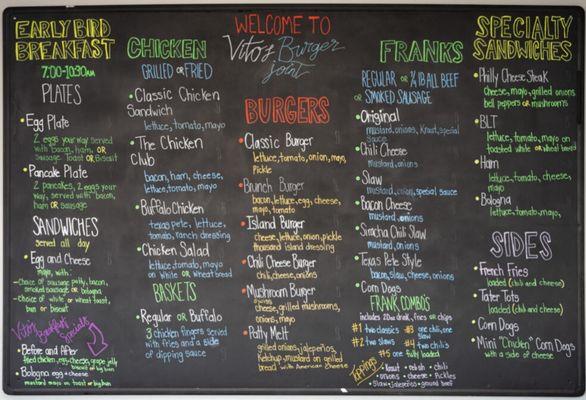 EARLY BIRD
BREAKFAST
7:00-10:30AM
PLATES
• Egg Plate
2 eggs your way served
with bacon, ham, or
sausage Toast OR Biscuit
• Pancake Plate
2 pancakes, 2 eggs your
way, served with bacon,
ham OR sausage
SANDWICHES
served all day
• Egg and Cheese
mayo, with:
- Choice of sausage patty, bacon,
smoked sausage or bologna
- Choice of white or wheat toast,
bun or biscuit
Vito's Breakfast
Specials
• Before and After
fried chicken, egg, cheese, grape jelly
biscuit or big bun
• Bologna egg + cheese
mustard mayo on toast or big bun
CHICKEN
GRILLED OR FRIED
• Classic Chicken
Sandwich
lettuce, tomato, mayo
• The Chicken
Club
bacon, ham, cheese,
lettuce, tomato, mayo
• Buffalo Chicken
texas pete, lettuce,
tomato, ranch dressing
• Chicken Salad
lettuce, tomato, mayo
on white OR wheat bread
BASKETS
• Regular OR Buffalo
3 chicken fingers served
with fries and a side
of dipping sauce
WELCOME TO
Vito's Burger
Joint
BURGERS
• Classic Burger
lettuce, tomato, onion, mayo,
pickle
• Brunch Burger
bacon, lettuce, egg, cheese,
mayo, tomato
• Island Burger
cheese, lettuce, onion, pickle
thousand island dressing
• Chili Cheese Burger
chili, cheese, onions
• Mushroom Burger
cheese, grilled mushrooms,
onions, mayo
• Patty Melt
grilled onions, jalepeños,
Ketchup, mustard on grilled
bread with American Cheese
FRANKS
REGULAR OR 1/4 lb ALL BEEF
OR SMOKED SAUSAGE
• Original
mustard, onions, Kraut, special
sauce
• Chili Cheese
mustard, onions
• Slaw
mustard, onions, special sauce
• Bacon Cheese
mustard, onions
• Siracha Chili Slaw
mustard, onions
• Texas Pete Style
bacon, slaw, cheese, onions
• Corn Dogs
FRANK COMBO'S
includes 20oz drink, fries OR chips
#1 two classics #3 one chili, one slaw
#2 two slaws #4 two chilis
#5 one fully loaded
Toppings
• Kraut • relish • chili
• onions • cheese • Pickles
• Slaw • jalepeños • ground beef
SPECIALTY
SANDWICHES
• Philly Cheese Steak
Cheese, mayo, grilled onions
bell peppers or mushrooms
• BLT
lettuce, tomato, mayo on
toasted white OR wheat bread
• Ham
lettuce, tomato, cheese,
mayo
• Bologna
lettuce, tomato, mayo,
SIDES
• French Fries
loaded (chili and cheese)
• Tater Tots
loaded (chili and cheese)
• Corn Dogs
• Mini "Chicken" Corn Dogs
with a side of cheese